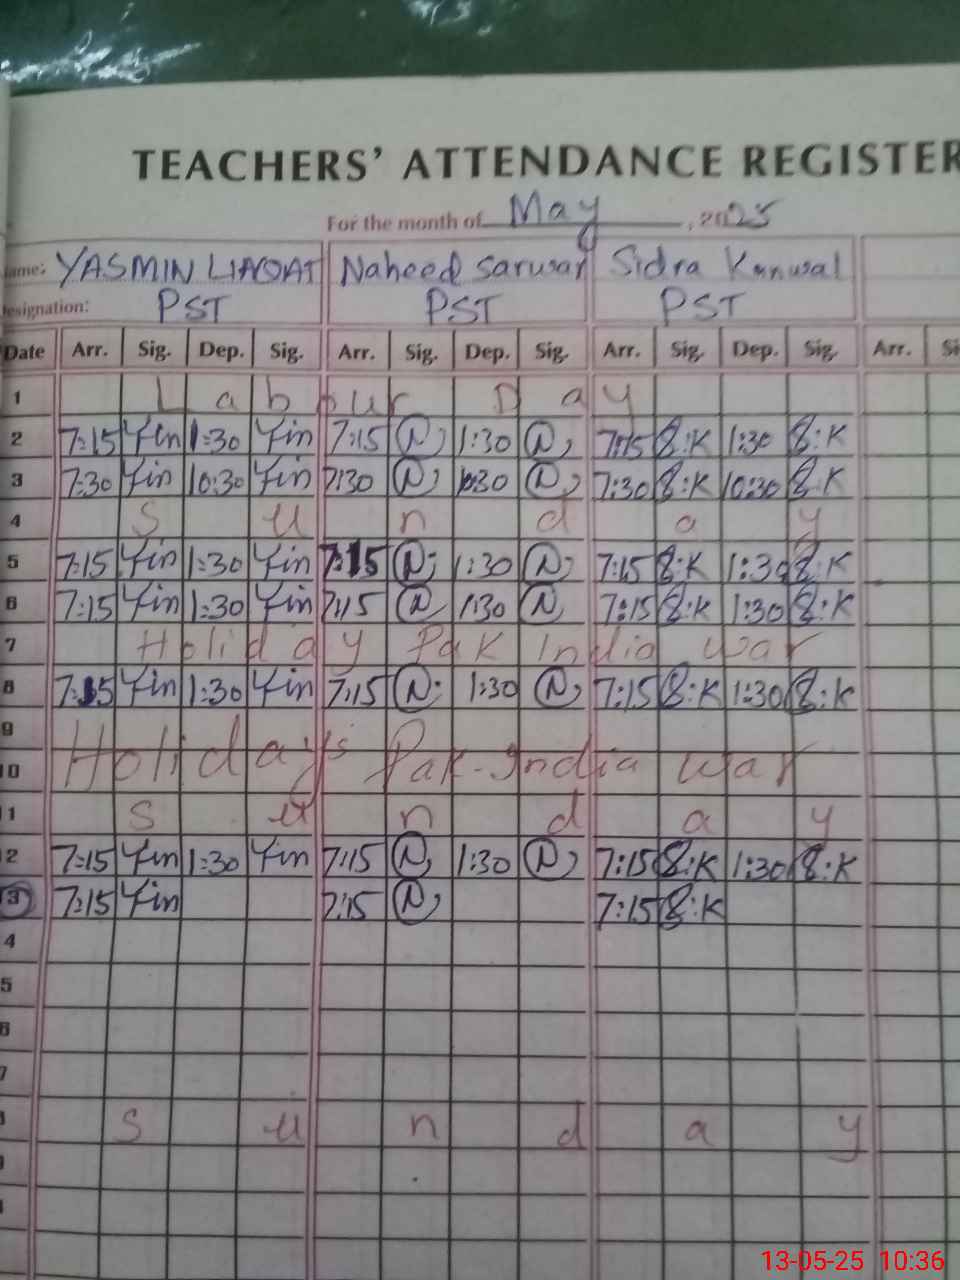 TEACHERS' ATTENDANCE REGISTER
For the month of May, 2025
ame: YASMIN LIAQAT Naheed Sarwar Sidra Kanwal
esignation: PST PST PST
Date Arr. Sig. Dep. Sig. Arr. Sig. Dep. Sig. Arr. Sig. Dep. Sig. Arr. Si
1 Labour Day
2 7:15 Yin 1:30 Yin 7:15 N 1:30 N 7:15 S:K 1:30 S:K
3 7:30 Yin 10:30 Yin 7:30 N 10:30 N 7:30 S:K 10:30 S:K
4 Sunday
5 7:15 Yin 1:30 Yin 7:15 N 1:30 N 7:15 S:K 1:30 S:K
6 7:15 Yin 1:30 Yin 7:15 N 1:30 N 7:15 S:K 1:30 S:K
7 Holiday Pak India war
8 7:15 Yin 1:30 Yin 7:15 N 1:30 N 7:15 S:K 1:30 S:K
9
10 Holidays Pak-India war
1 Sunday
2 7:15 Yin 1:30 Yin 7:15 N 1:30 N 7:15 S:K 1:30 S:K
3 7:15 Yin 7:15 N 7:15 S:K
4
5
6
7
Sunday
13-05-25 10:36